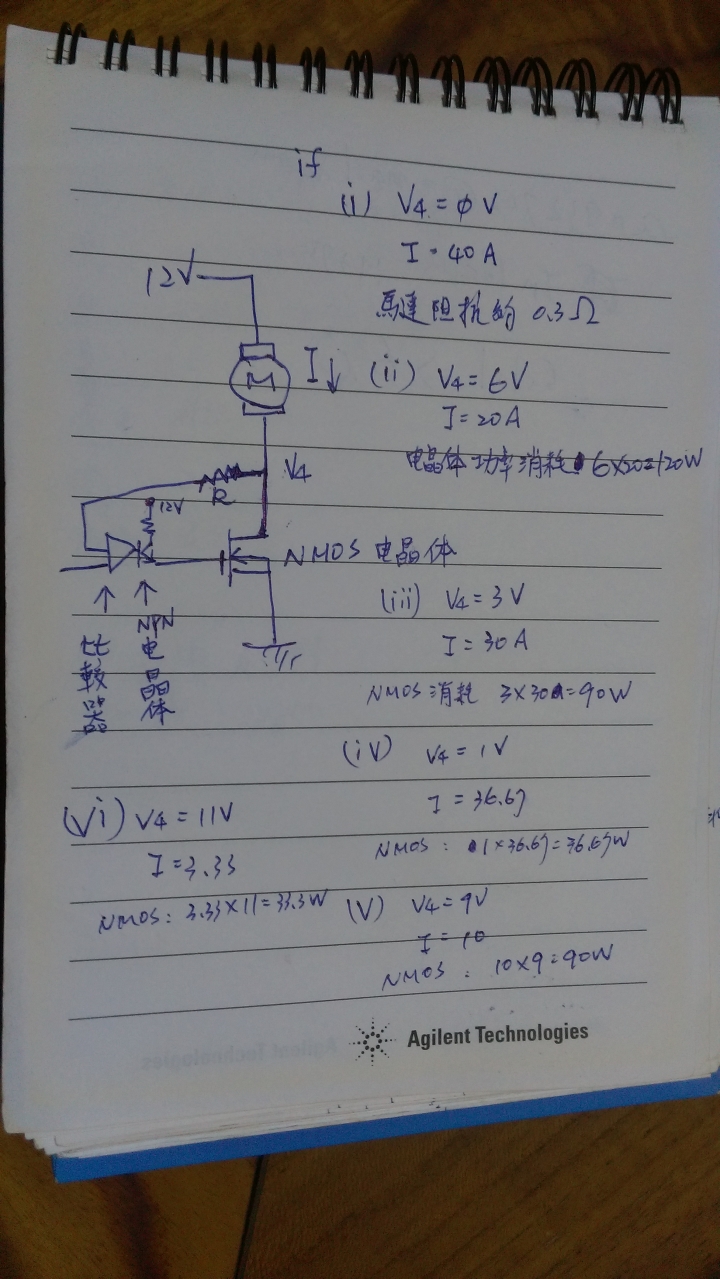 if
(i) V4 = φ V
I = 40 A
馬達阻抗約 0.3Ω
12V
M
I↓
(ii) V4 = 6V
I = 20A
电晶体功率消耗 6×20=120W
V4
R
12V
NMOS 电晶体
比較器
NPN 电晶体
(iii) V4 = 3V
I = 30A
NMOS 消耗 3×30=90W
(iv) V4 = 1V
I = 36.67
NMOS: 1×36.67=36.67W
(V) V4 = 9V
I = 10
NMOS: 10×9=90W
(Vi) V4 = 11V
I = 3.33
NMOS: 3.33×11=33.3W
Agilent Technologies